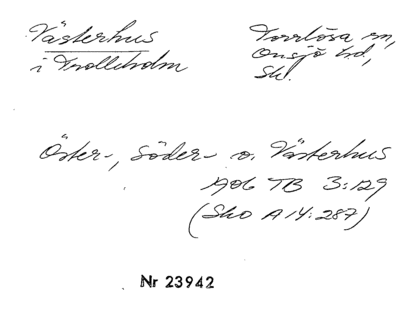 Västerhus
i Trolleholm
Torrlösa sn,
Onsjö hd,
Sk.
Öster-, Söder- o. Västerhus
1906 TB 3:129
(Sko A 14:287)
Nr 23942